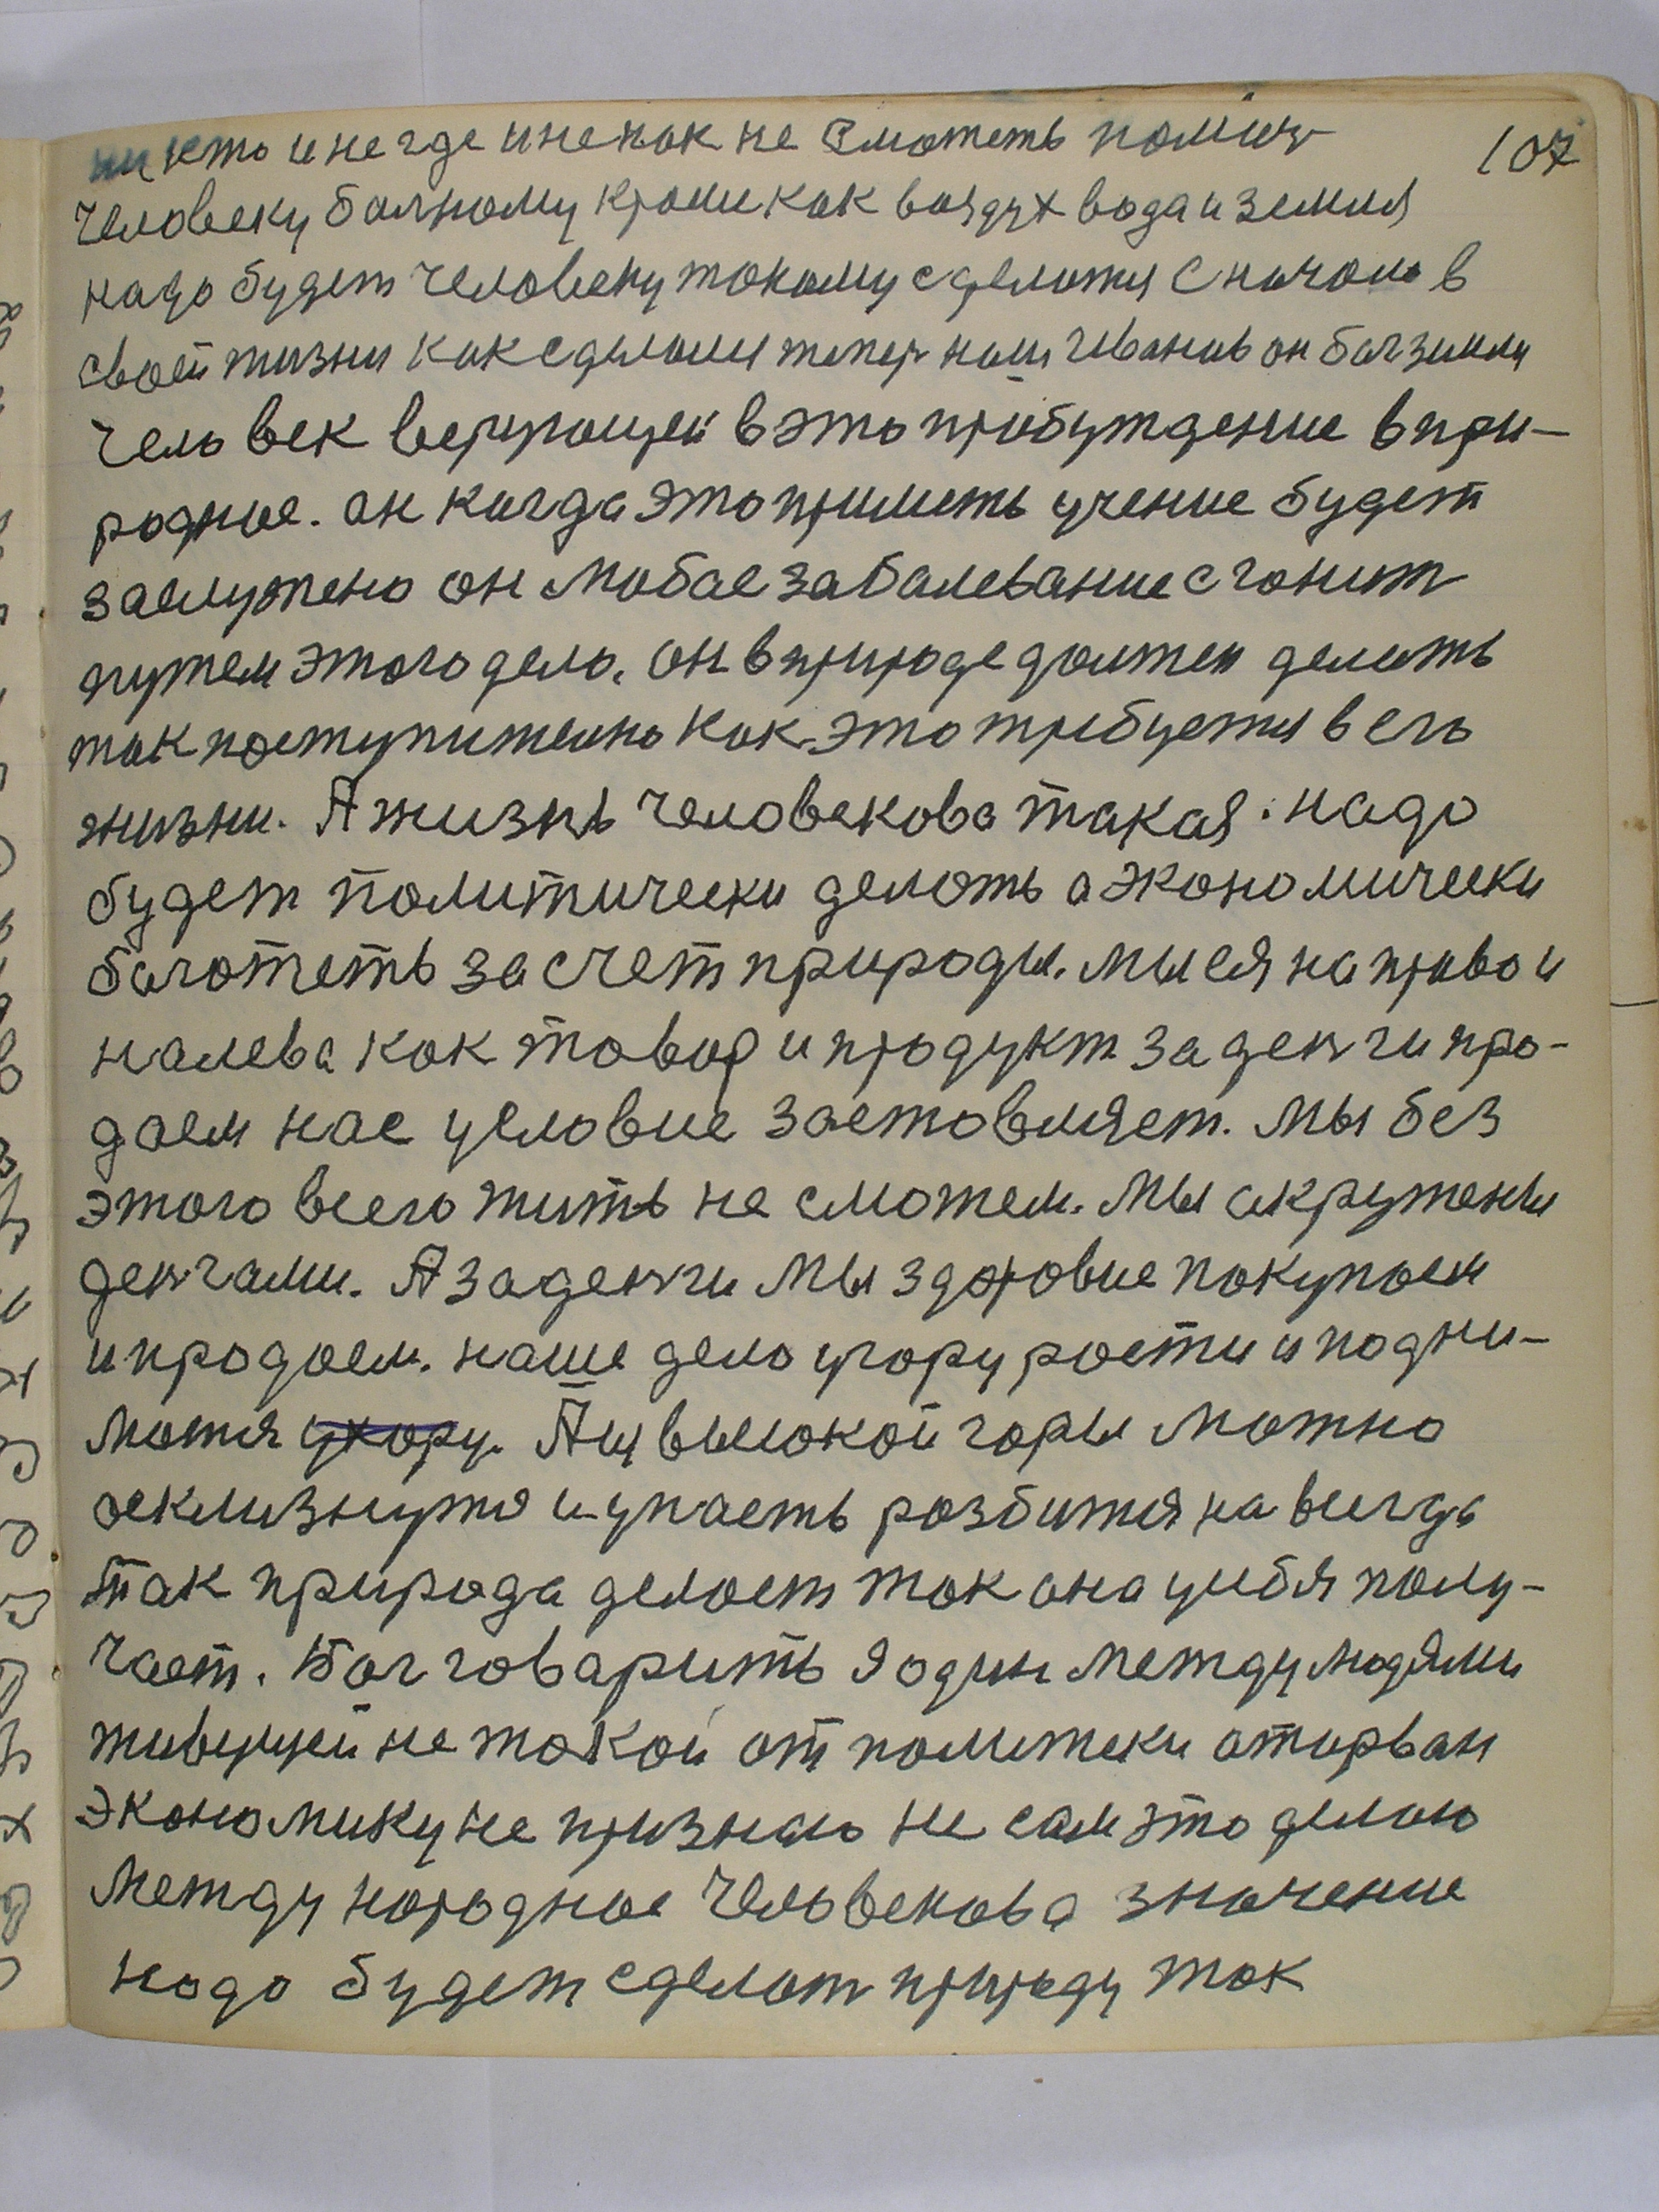 107
ни кто и не где и не как не сможеть помич
человеку болному кроми как воздух вода и земля
надо будет человеку токому сделатя с начало в
своей жизни как сделался тепер наш Иванов он бог земли
чело век верующей в это пробуждение в при-
родное. он когда это приметь учение будет
заслужено он любое заболевание сгонит
путем этого дело. он в природе должен делать
так поступително как это требуется в его
жизни. А жизнь человекова такая. надо
будет политически делоть а экономически
богатеть за счет природы. мы ея направо и
налева как товар и продукт за денги про-
даем нас условие застовляет. Мы без
этого всего жить не сможем. Мы окружены
денгами. А за денги мы здоровие покупаем
и продоем. наше дело угору рости и подни-
мотся ухору. А из высокой горы можно
склизнутя и упасть розбится на всегда
так природа делоет ток она усибя полу-
чает. Бог говарить я один между людями
живущей не такой от политеки аторван
экономику не признаю не сам это делою
между нородное человекова значение
надо будет сделат природу ток